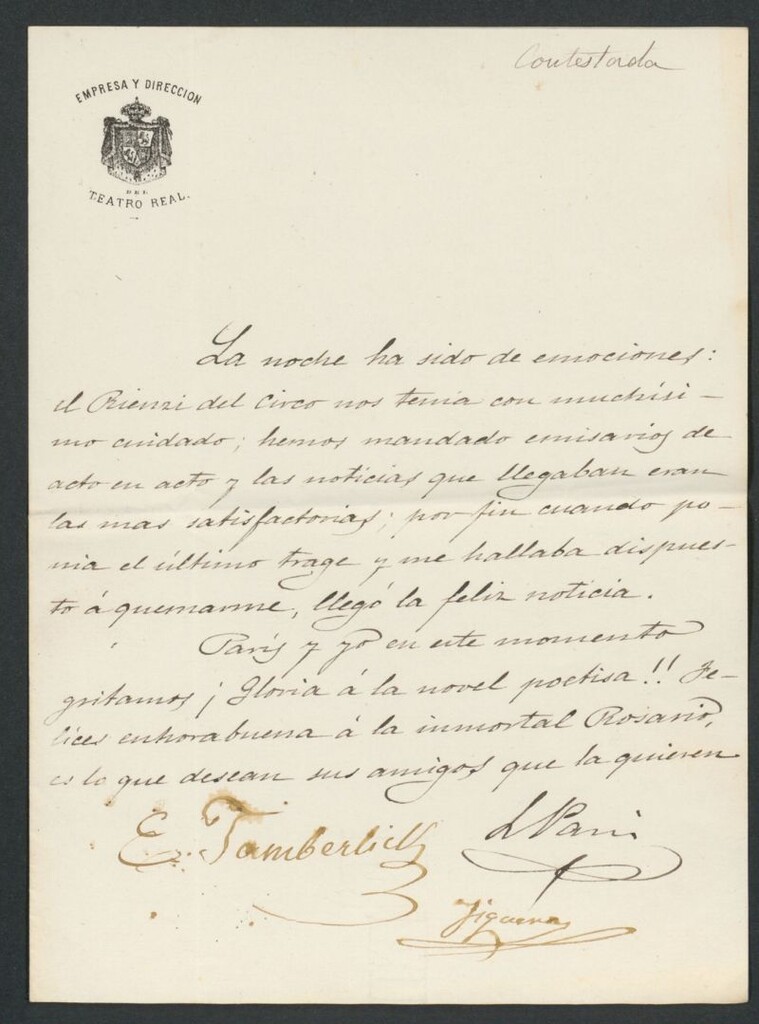 Contestada
EMPRESA Y DIRECCION
DEL
TEATRO REAL.
La noche ha sido de emociones:
el Rienzi del Circo nos tenia con muchísi-
mo cuidado; hemos mandado emisarios de
acto en acto y las noticias que llegaban eran
las mas satisfactorias; por fin cuando po-
nia el último trage y me hallaba dispues-
to á quemarme, llegó la feliz noticia.
Paris y yo en este momento
gritamos ¡Gloria á la novel poetisa!! Fe-
lices enhorabuena á la inmortal Rosario,
es lo que desean sus amigos que la quieren
E. Tamberlick
L Paris
Figueras